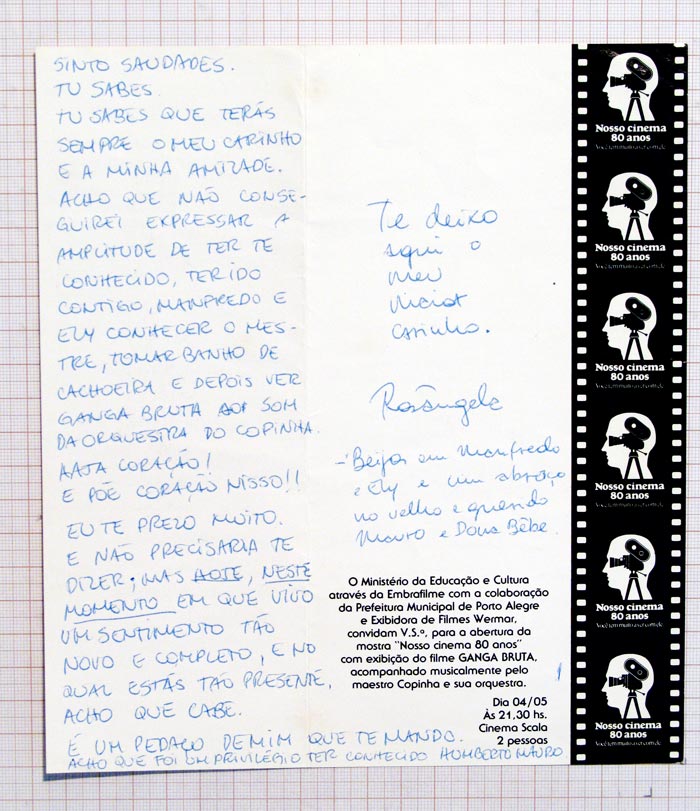 SINTO SAUDADES.
TU SABES.
TU SABES QUE TERÁS
SEMPRE O MEU CARINHO
E A MINHA AMIZADE.
ACHO QUE NÃO CONSE-
GUIREI EXPRESSAR A
AMPLITUDE DE TER TE
CONHECIDO, TER IDO
CONTIGO, MANFREDO E
ELY CONHECER O MES-
TRE, TOMAR BANHO DE
CACHOEIRA E DEPOIS VER
GANGA BRUTA AO SOM
DA ORQUESTRA DO COPINHA.
HAJA CORAÇÃO!
E PÕE CORAÇÃO NISSO!!
EU TE PREZO MUITO.
E NÃO PRECISARIA TE
DIZER; MAS HOJE, NESTE
MOMENTO EM QUE VIVO
UM SENTIMENTO TÃO
NOVO E COMPLETO, E NO
QUAL ESTÁS TÃO PRESENTE,
ACHO QUE CABE.
É UM PEDAÇO DE MIM QUE TE MANDO.
ACHO QUE FOI UM PRIVILÉGIO TER CONHECIDO HUMBERTO MAURO
Te deixo
aqui o
meu
maior
carinho.
Rosângela
- Beijos em Manfredo
e Ely e um abraço
no velho e querido
Mauro e Dona Bêbe.
O Ministério da Educação e Cultura
através da Embrafilme com a colaboração
da Prefeitura Municipal de Porto Alegre
e Exibidora de Filmes Wermar,
convidam V.S.ª, para a abertura da
mostra "Nosso cinema 80 anos"
com exibição do filme GANGA BRUTA,
acompanhado musicalmente pelo
maestro Copinha e sua orquestra.
Dia 04/05
Às 21,30 hs.
Cinema Scala
2 pessoas
Nosso cinema
80 anos
Nosso cinema
80 anos
Nosso cinema
80 anos
Nosso cinema
80 anos
Nosso cinema
80 anos
Nosso cinema
80 anos